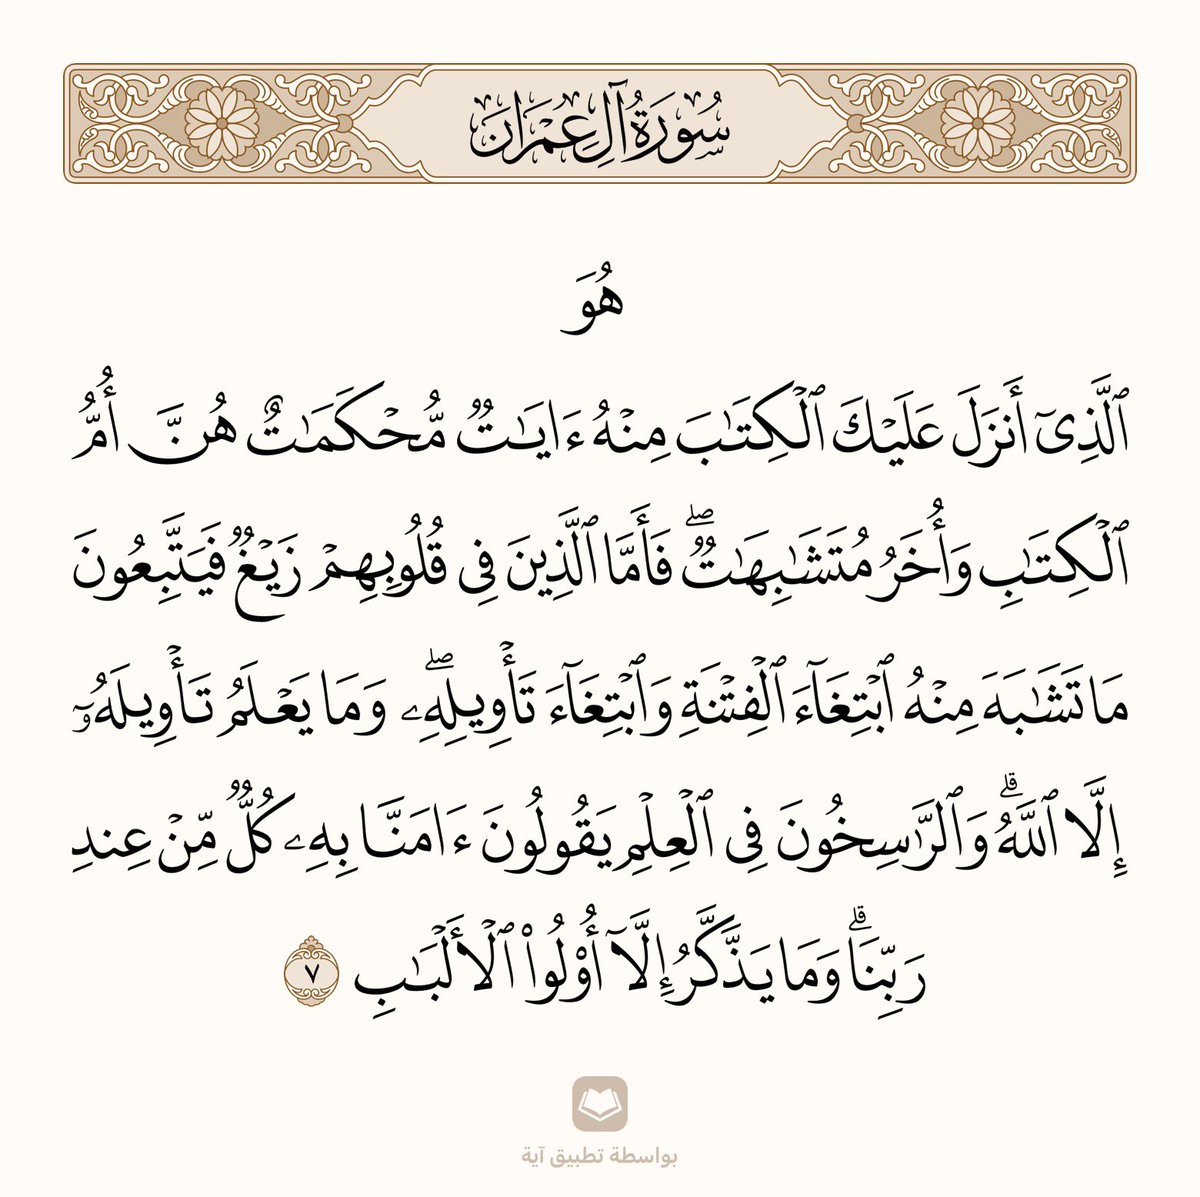 سُورَةُ آلِ عِمْرَان
هُوَ
ٱلَّذِىٓ أَنزَلَ عَلَيْكَ ٱلْكِتَـٰبَ مِنْهُ ءَايَـٰتٌۭ مُّحْكَمَـٰتٌ هُنَّ أُمُّ
ٱلْكِتَـٰبِ وَأُخَرُ مُتَشَـٰبِهَـٰتٌۭ ۖ فَأَمَّا ٱلَّذِينَ فِى قُلُوبِهِمْ زَيْغٌۭ فَيَتَّبِعُونَ
مَا تَشَـٰبَهَ مِنْهُ ٱبْتِغَآءَ ٱلْفِتْنَةِ وَٱبْتِغَآءَ تَأْوِيلِهِۦ ۖ وَمَا يَعْلَمُ تَأْوِيلَهُۥٓ
إِلَّا ٱللَّهُ ۗ وَٱلرَّٰسِخُونَ فِى ٱلْعِلْمِ يَقُولُونَ ءَامَنَّا بِهِۦ كُلٌّۭ مِّنْ عِندِ
رَبِّنَا ۗ وَمَا يَذَّكَّرُ إِلَّآ أُو۟لُوا۟ ٱلْأَلْبَـٰبِ ٧
بواسطة تطبيق آية